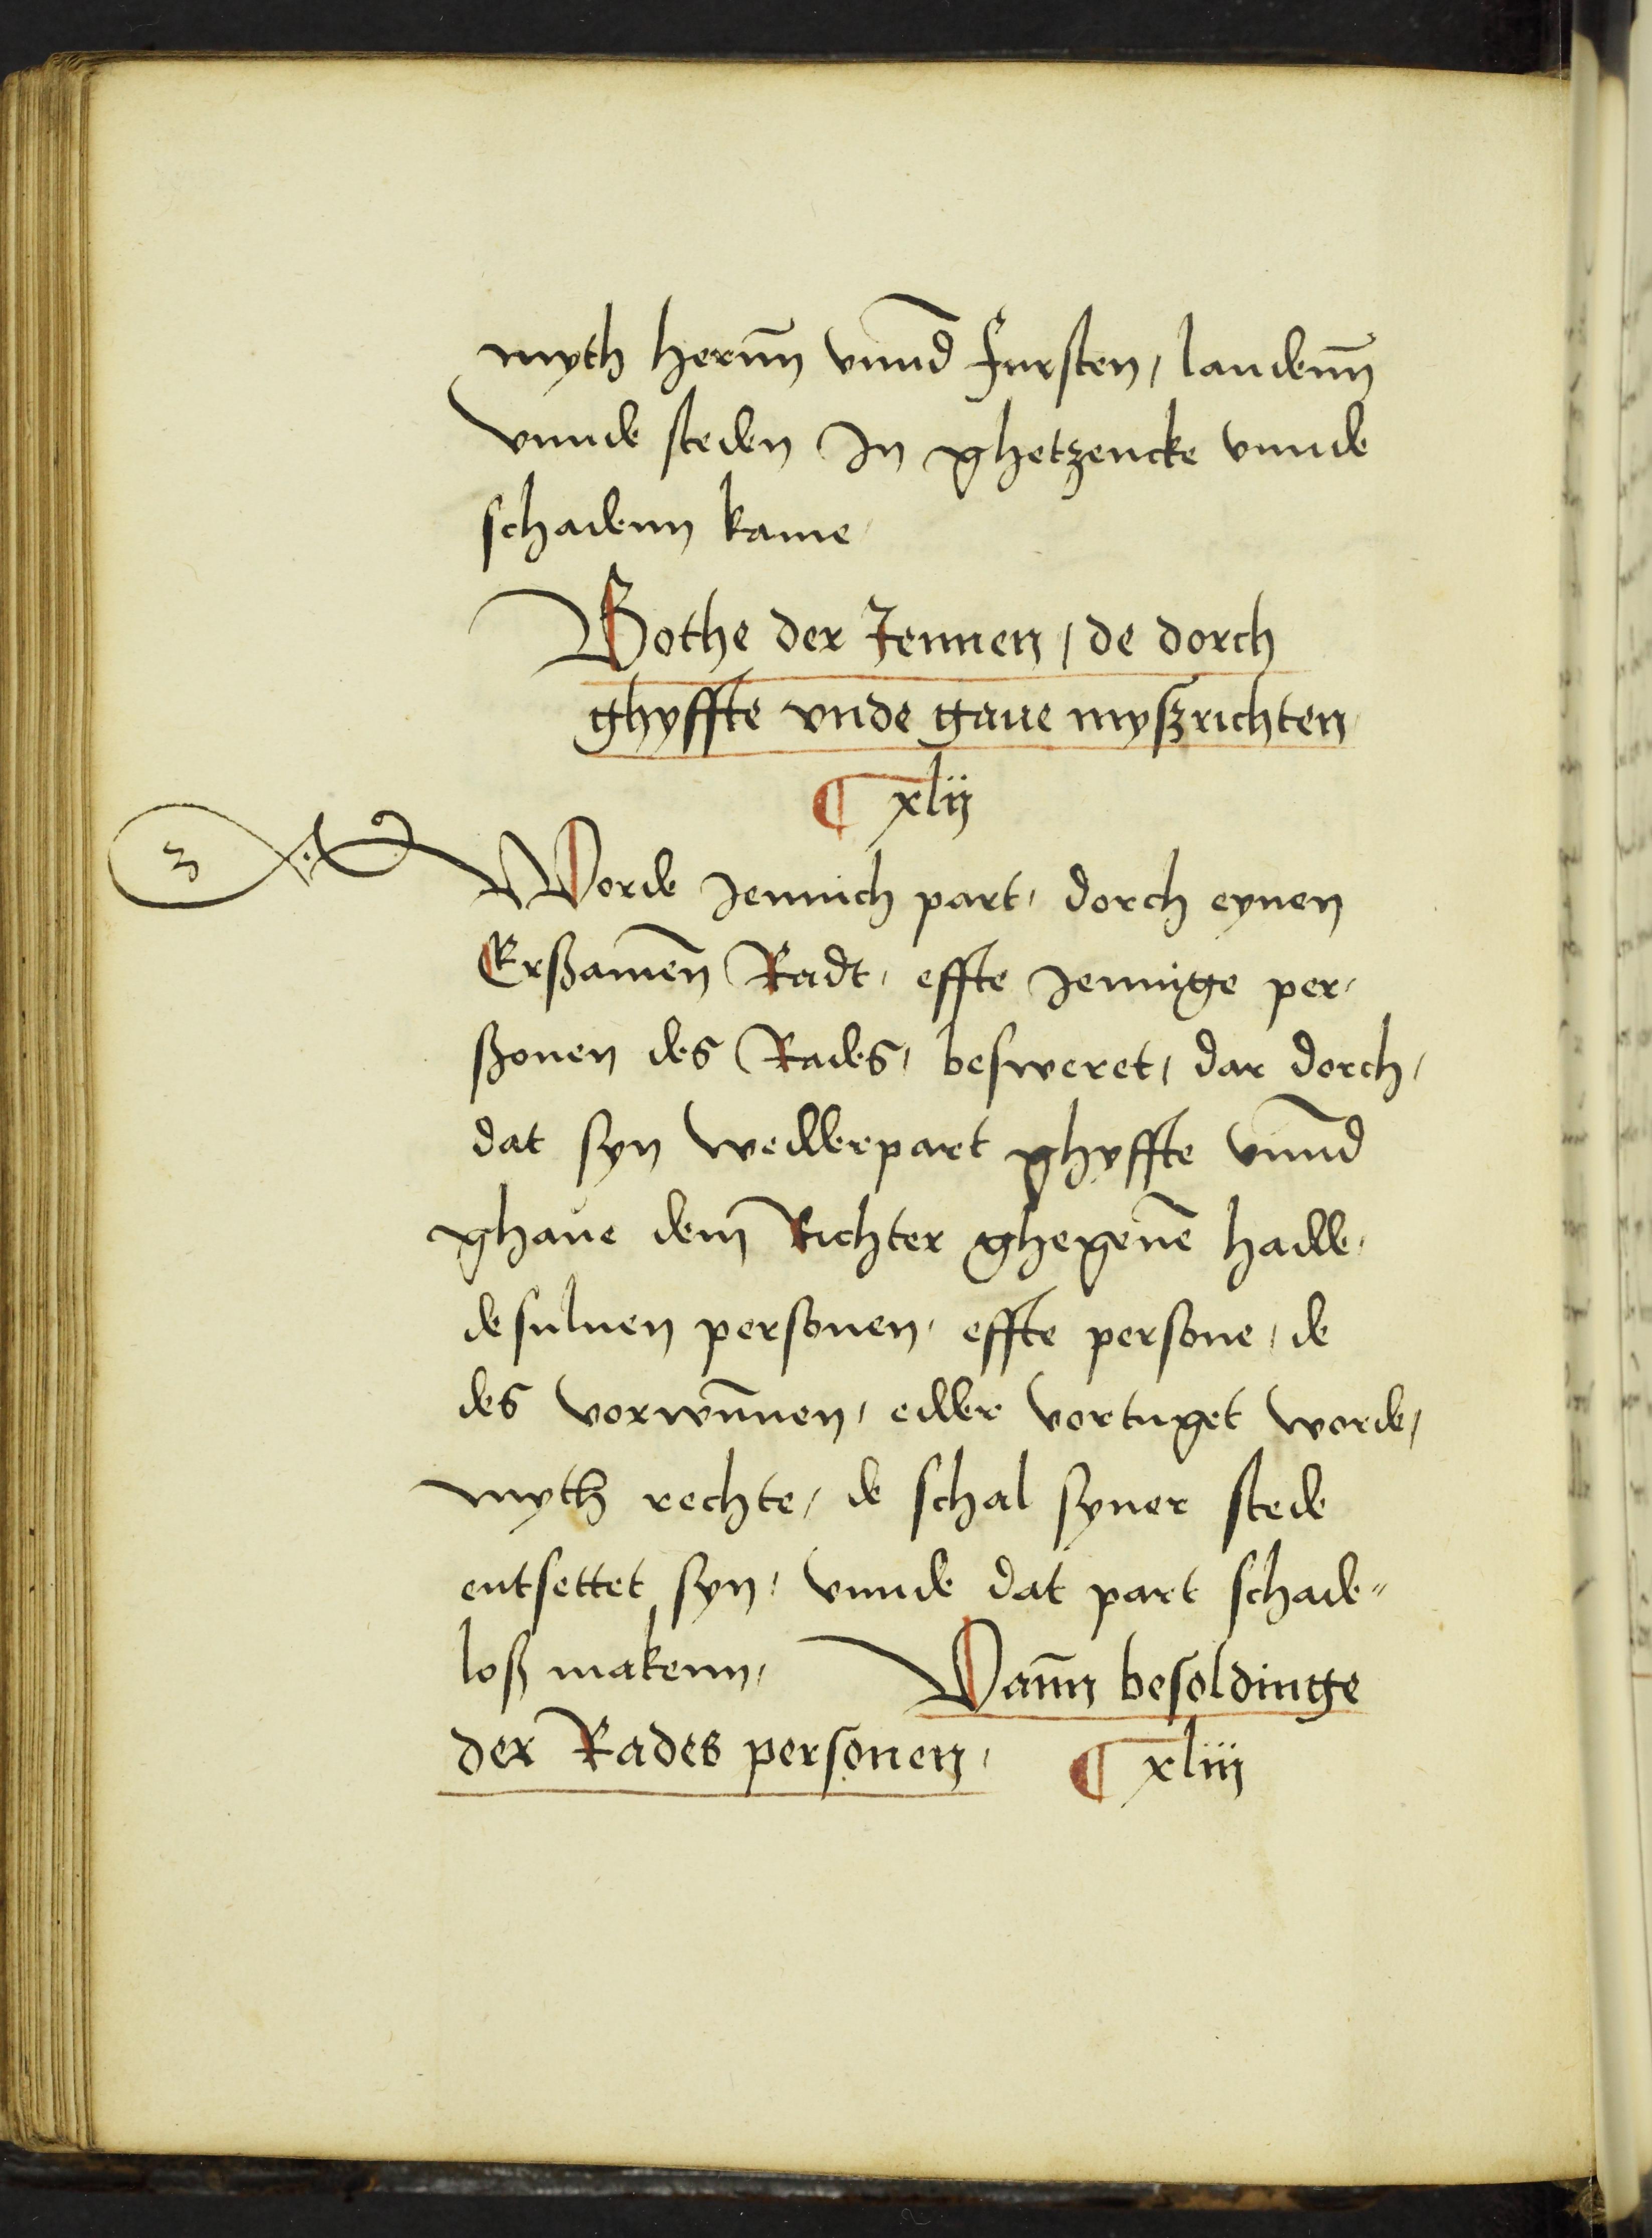 myth hernn vnnd fursten, landenn
vnnde steden In ghetzencke vnnde
schadenn kame
Bothe der Jennen, de dorch
ghyffte vnde gaue myszrichten
¶ xlij
Worde Jennich part, dorch eynen
Erßamen Radt, effte Jennige per,
ßonen des Rades, besweret, dar dorch,
dat syn wedderpart ghyffte vnnd
ghaue dem Richter ghegeue hadde,
desuluen personen, effte persone, de
des vorwunnen, edder vortuget worde,
myth rechte, de schal syner stede
entsettet syn, vnnde dat part schade„
loß makenn, Vann besoldinge
der Rades personen, ¶ xliij